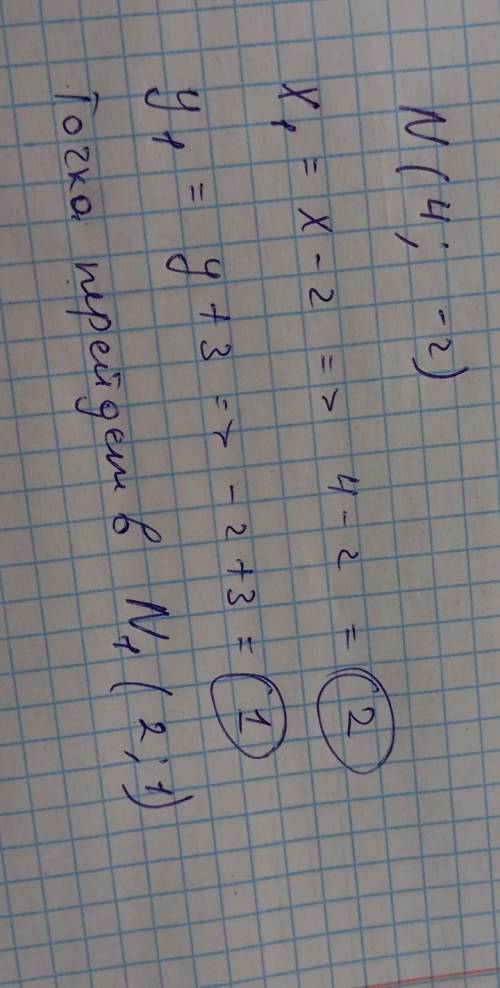 N (4; -2)
x₁ = x - 2 => 4 - 2 = 2
y₁ = y + 3 => - 2 + 3 = 1
Точка перейдет в N₁ (2; 1)